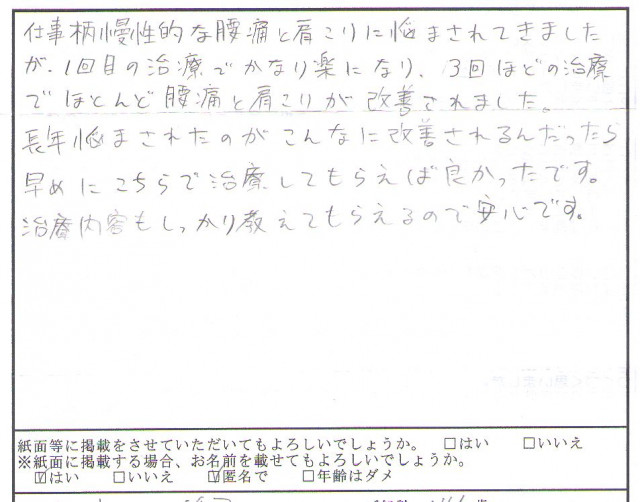 仕事柄慢性的な腰痛と肩こりに悩まされてきました
が、1回目の治療でかなり楽になり、3回ほどの治療
でほとんど腰痛と肩こりが改善されました。
長年悩まされたのがこんなに改善されるんだったら
早めにこちらで治療してもらえば良かったです。
治療内容もしっかり教えてもらえるので安心です。
紙面等に掲載をさせていただいてもよろしいでしょうか。 □はい □いいえ
※紙面に掲載する場合、お名前を載せてもよろしいでしょうか。
☑はい □いいえ ☑匿名で □年齢はダメ